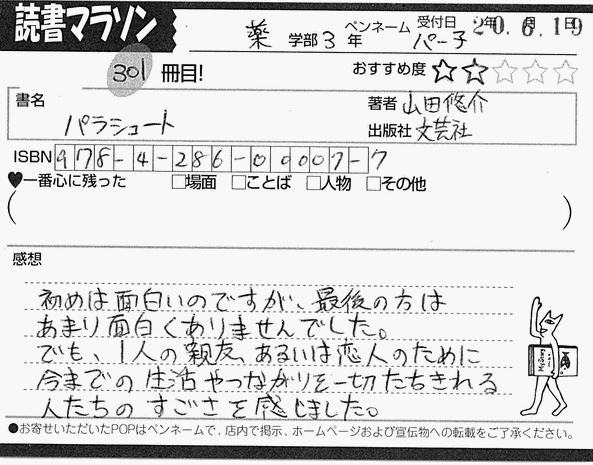 読書マラソン
薬 学部 3 年 ペンネーム パー子 受付日 20.6.19
301 冊目! おすすめ度 ☆☆☆☆☆
書名 パラシュート
著者 山田悠介
出版社 文芸社
ISBN 978-4-286-00007-7
♥一番心に残った □場面 □ことば □人物 □その他
( )
感想
初めは面白いのですが、最後の方は
あまり面白くありませんでした。
でも、1人の親友、あるいは恋人のために
今までの生活やつながりを一切たちきれる
人たちのすごさを感じました。
●お寄せいただいたPOPはペンネームで、店内で掲示、ホームページおよび宣伝物への転載をご了承ください。